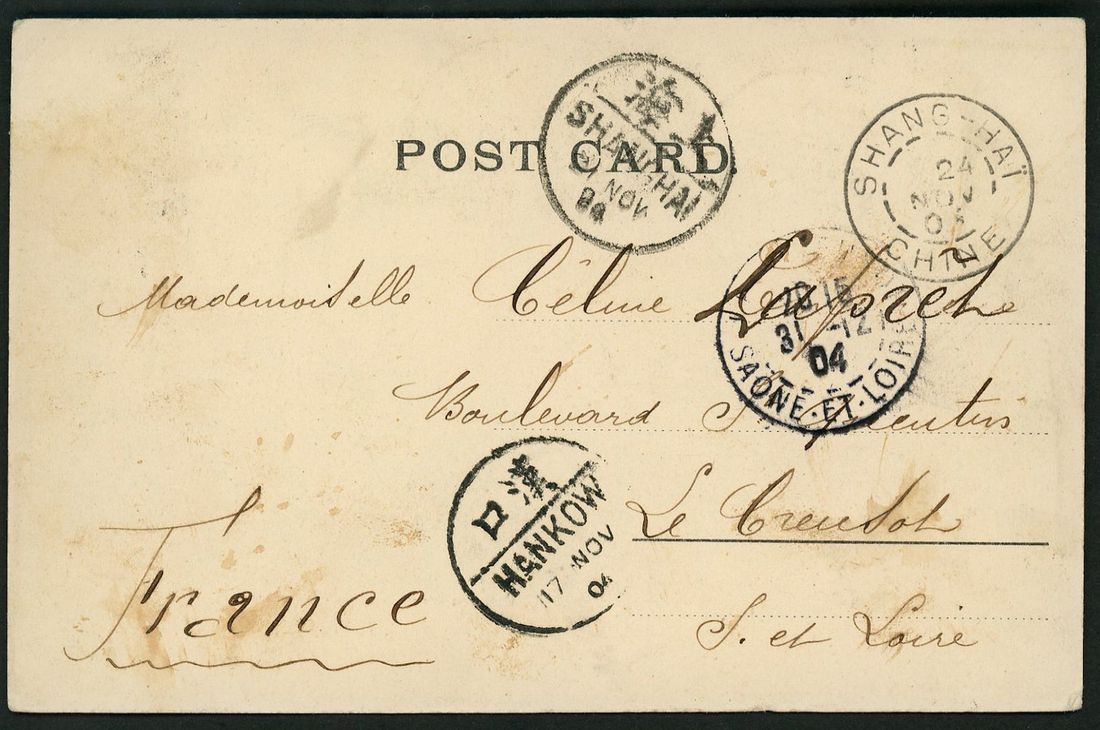 POST CARD.
上海
SHANGHAI
NOV
04
SHANG-HAÏ
24
NOV
CHINE
Mademoiselle Céline
31 -12
04
SAÔNE-ET-LOIRE
Boulevard
漢口
HANKOW
17 NOV
04
Le Creusot
France
S. et Loire